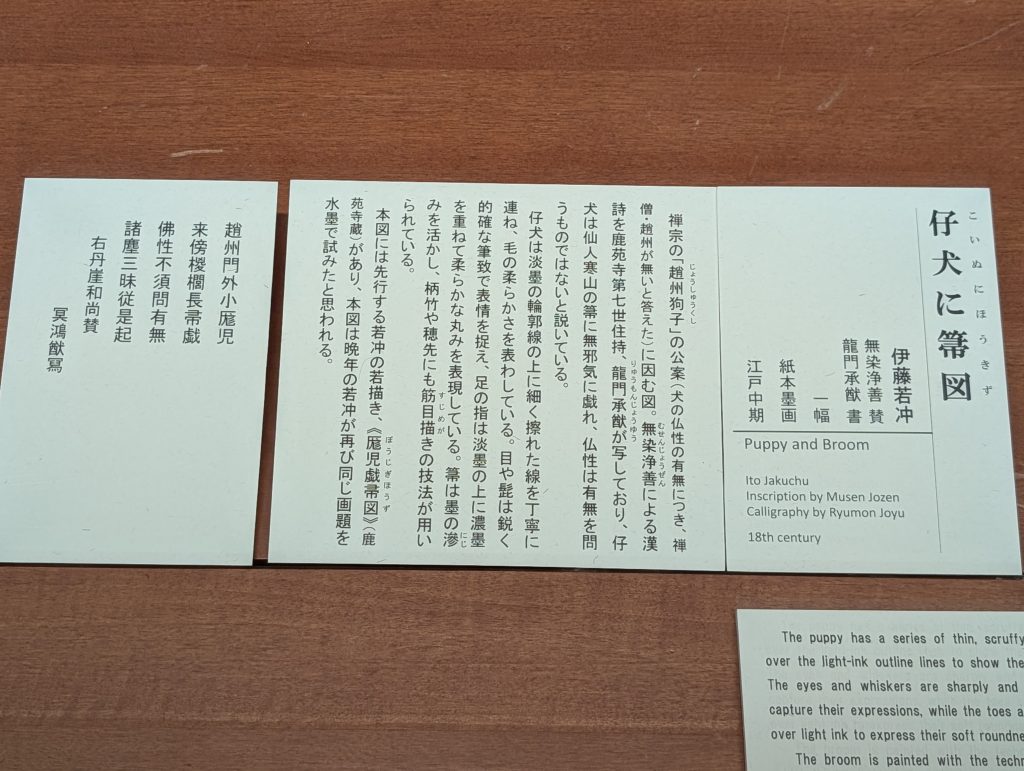 仔犬に箒図
こいぬにほうきず
伊藤若冲
無染浄善 賛
龍門承猷 書
一幅
紙本墨画
江戸中期
Puppy and Broom
Ito Jakuchu
Inscription by Musen Jozen
Calligraphy by Ryumon Joyu
18th century
禅宗の「趙州狗子」の公案(犬の仏性の有無につき、禅
じょうしゅうくし
僧・趙州が無いと答えた)に因む図。無染浄善による漢
むせんじょうぜん
詩を鹿苑寺第七世住持、龍門承猷が写しており、仔
りゅうもんじょうゆう
犬は仙人寒山の箒に無邪気に戯れ、仏性は有無を問
うものではないと説いている。
仔犬は淡墨の輪郭線の上に細く擦れた線を丁寧に
連ね、毛の柔らかさを表わしている。目や髭は鋭く
的確な筆致で表情を捉え、足の指は淡墨の上に濃墨
を重ねて柔らかな丸みを表現している。箒は墨の滲
にじ
みを活かし、柄竹や穂先にも筋目描きの技法が用い
すじめが
られている。
本図には先行する若冲の若描き、《厖児戯帚図》(鹿
ぼうじぎほうず
苑寺蔵)があり、本図は晩年の若冲が再び同じ画題を
水墨で試みたと思われる。
趙州門外小厖児
来傍椶櫚長帚戯
佛性不須問有無
諸塵三昧従是起
右丹崖和尚賛
冥鴻猷冩
The puppy has a series of thin, scruffy
over the light-ink outline lines to show the
The eyes and whiskers are sharply and
capture their expressions, while the toes a
over light ink to express their soft roundne
The broom is painted with the techn